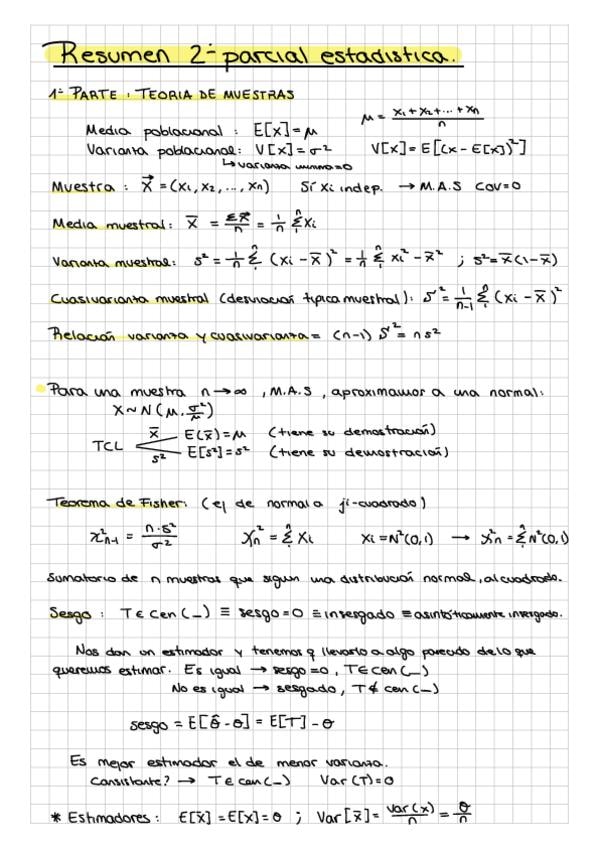 Resumen 2º parcial estadística.
1ª PARTE: TEORIA DE MUESTRAS
Media poblacional: E[X]=μ μ = (x₁+x₂+...+xₙ)/n
Varianza poblacional: V[X]=σ² V[X]=E[(X-E[X])²]
↳ varianza minima=0
Muestra: X⃗ = (X₁, X₂, ..., Xₙ) Si Xi indep. → M.A.S COV=0
Media muestral: X̄ = Σx̄/n = 1/n Σ₁ⁿ Xi
Varianza muestral: s² = 1/n Σ₁ⁿ (Xi - X̄)² = 1/n Σ₁ⁿ Xi² - X̄² ; s²= X̄(1-X̄)
Cuasivarianza muestral (desviación típica muestral): S'² = 1/(n-1) Σ₁ⁿ (Xi - X̄)²
Relación varianza y cuasivarianza = (n-1) S'² = n s²
Para una muestra n→∞, M.A.S, aproximamos a una normal:
X~N(μ, σ²/μ)
TCL X̄ E(X̄)=μ (tiene su demostración)
s² E[s²]=s² (tiene su demostración)
Teorema de Fisher: (el de normal a ji-cuadrado)
χ²ₙ₋₁ = n·s²/σ² χ²ₙ = Σ₁ⁿ Xi Xi = N²(0,1) → χ²ₙ = Σ₁ⁿ N²(0,1)
Sumatorio de n muestras que siguen una distribución normal, al cuadrado.
Sesgo: T ∈ cen(_) ≡ sesgo=0 ≡ insesgado ≡ asintóticamente insesgado.
Nos dan un estimador y tenemos q llevarlo a algo parecido de lo que
queremos estimar. Es igual → sesgo=0, T∈cen(_)
No es igual → sesgado, T ∉ cen(_)
sesgo = E[θ̂ - θ] = E[T] - θ
Es mejor estimador el de menor varianza.
Consistente? → T ∈ cen(_) Var(T)=0
* Estimadores: E[X̄]=E[X]=θ ; Var[X̄]= Var(x)/n = θ/n